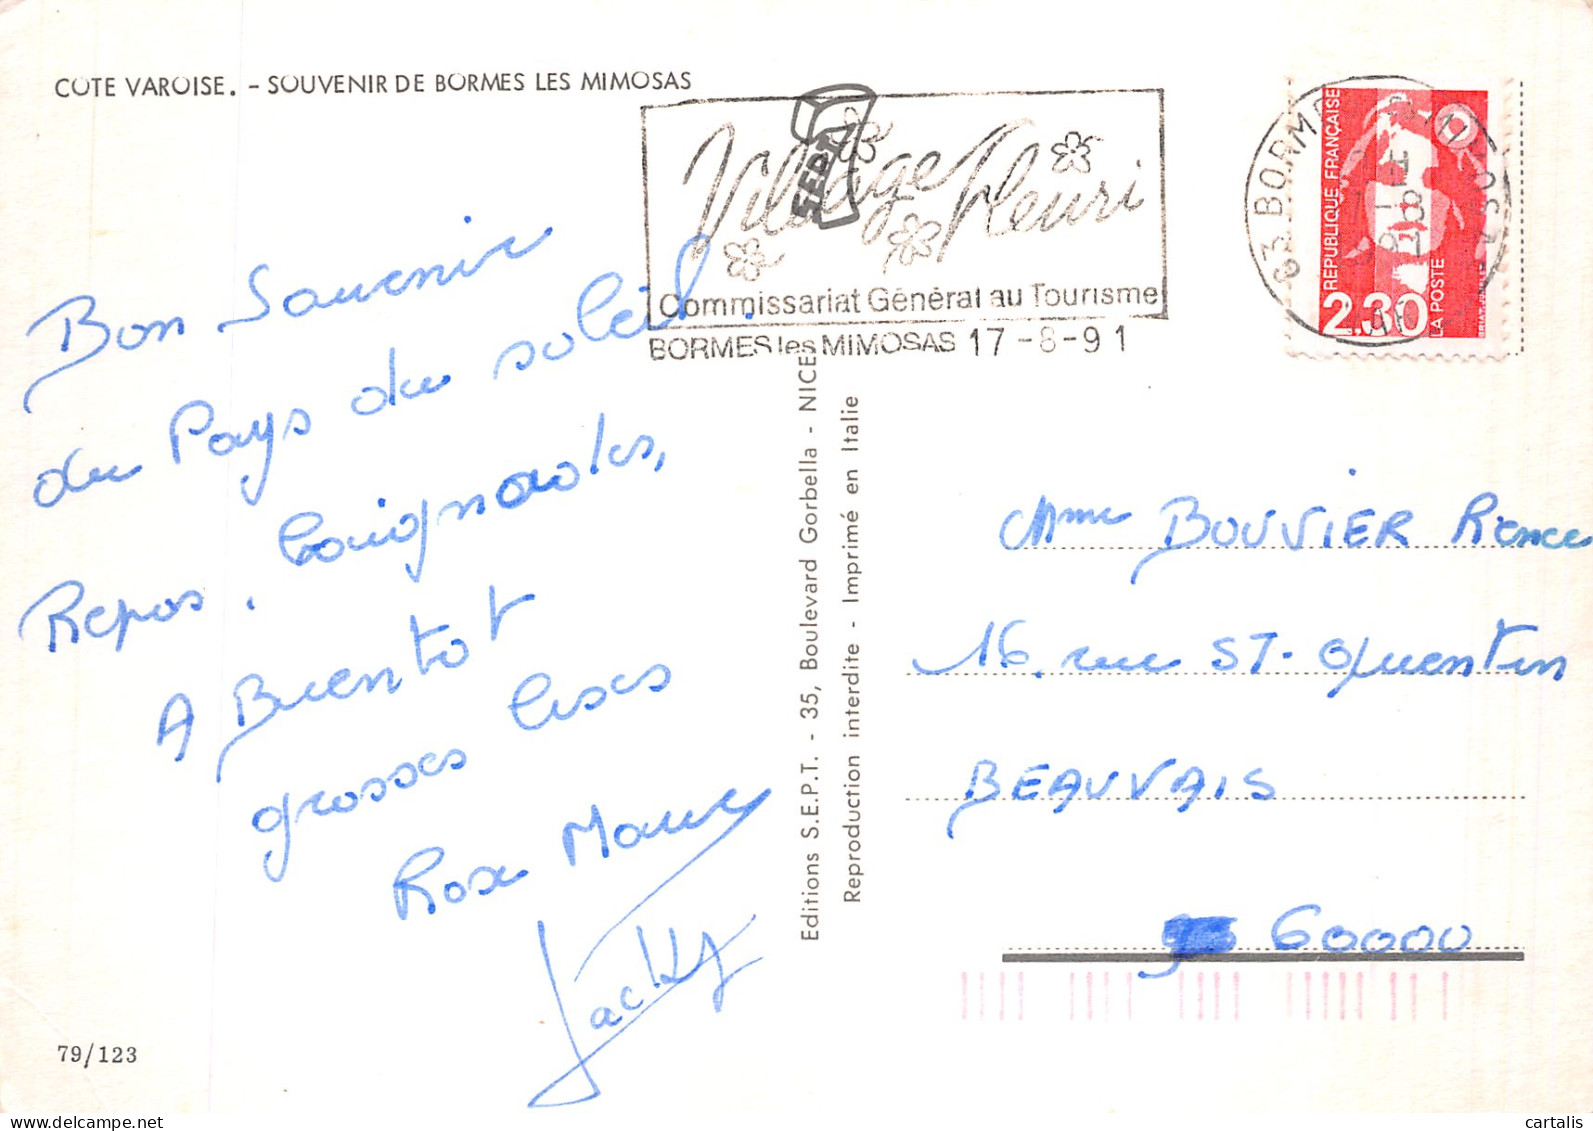 COTE VAROISE. - SOUVENIR DE BORMES LES MIMOSAS
Village Fleuri
SEPT
Commissariat Général au Tourisme
BORMES les MIMOSAS 17-8-91
RÉPUBLIQUE FRANÇAISE
2,30
LA POSTE
Bon Souvenir
du Pays du soleil
Repos.
A Bientot
grosses bises
Rose Marie
Jacky
Editions S.E.P.T. - 35, Boulevard Gorbella - NICE
Reproduction interdite - Imprimé en Italie
Mme BOUVIER Renée
16, rue ST. Quentin
BEAUVAIS
60000
79/123
cartalis